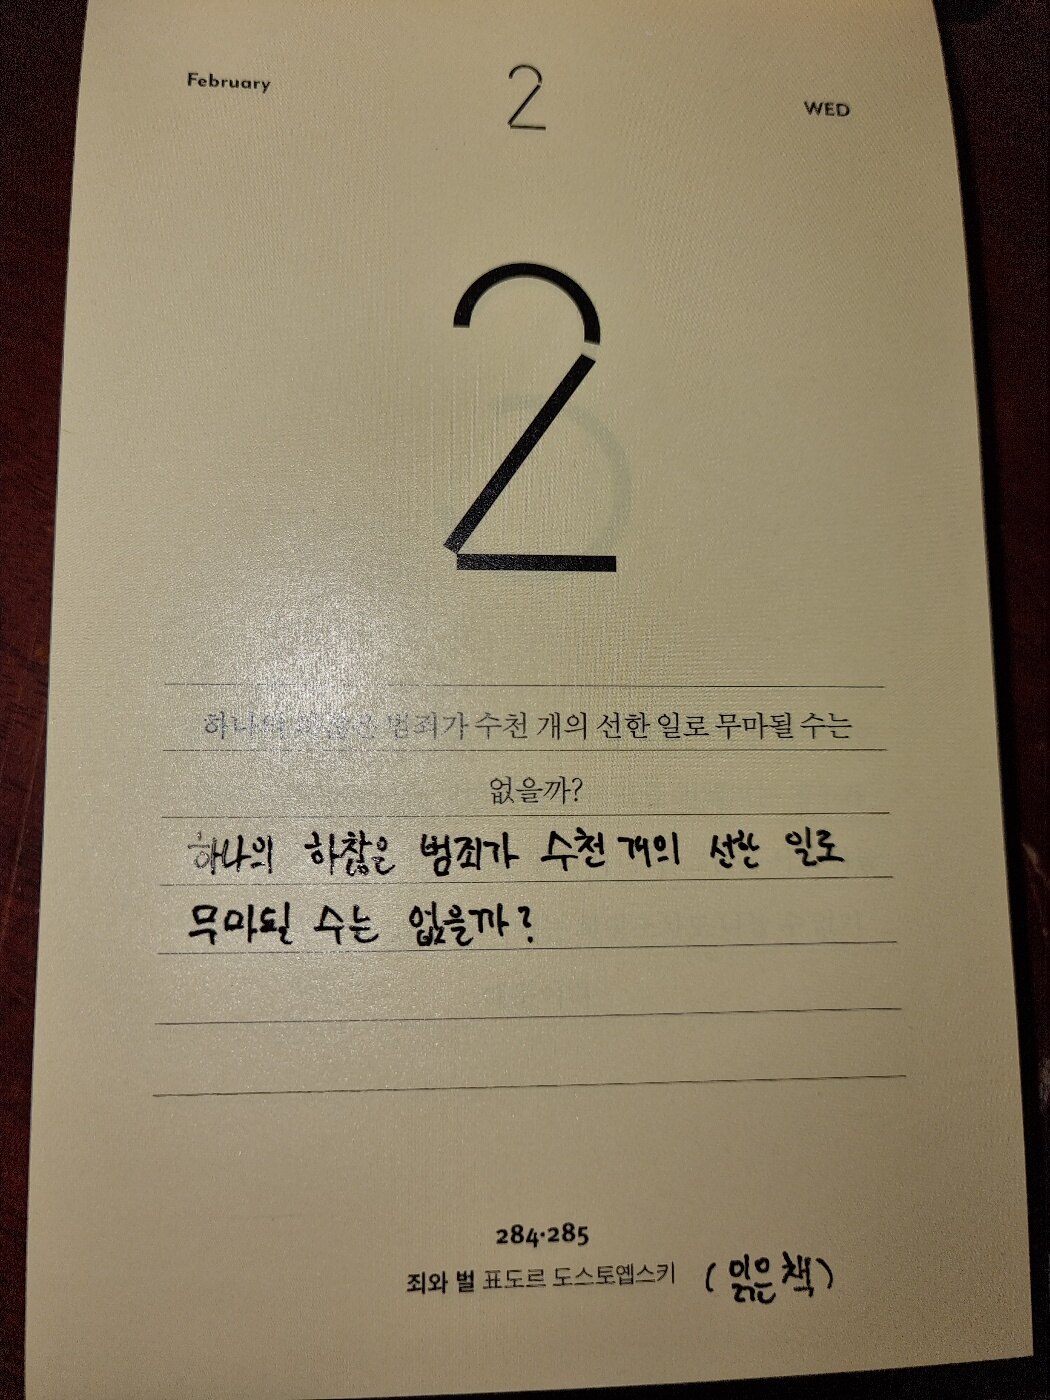 February 2 WED
2
하나의 하찮은 범죄가 수천 개의 선한 일로 무마될 수는
없을까?
하나의 하찮은 범죄가 수천 개의 선한 일로
무마될 수는 없을까?
284·285
죄와 벌 표도르 도스토옙스키 (읽은 책)